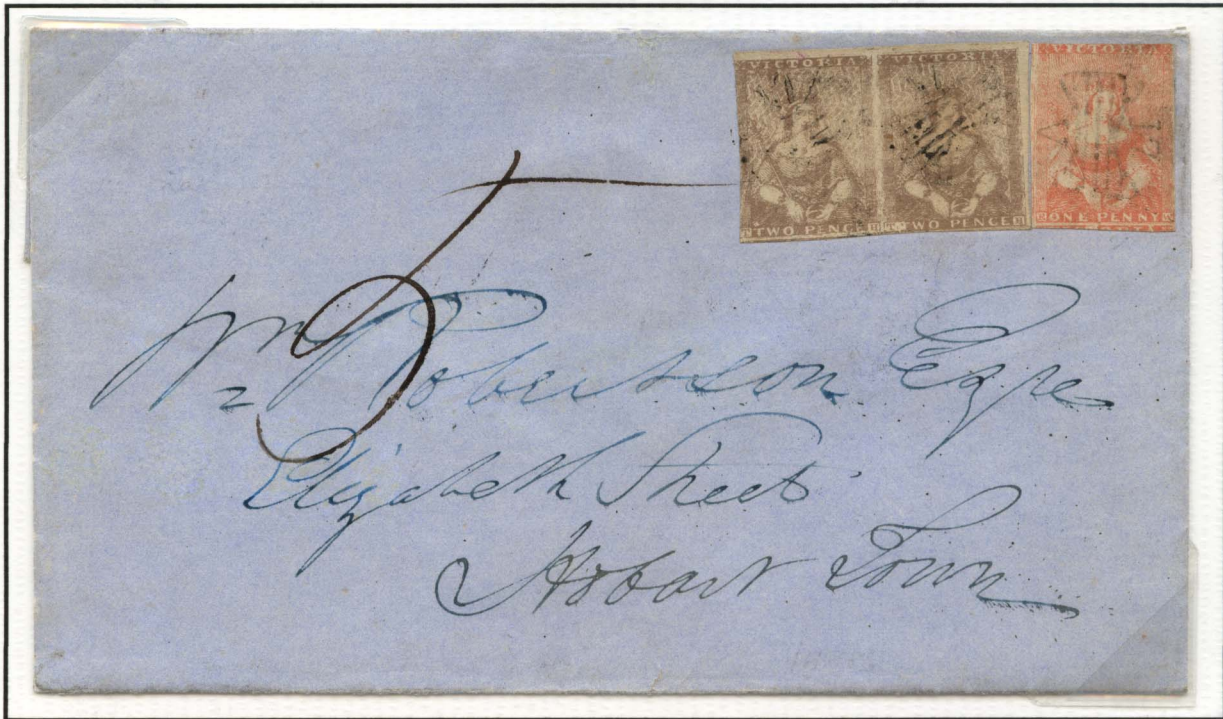 VICTORIA VICTORIA VICTORIA
TWO PENCE TWO PENCE ONE PENNY
5
Wm Robertson Esqre
Elizabeth Street
Hobart Town